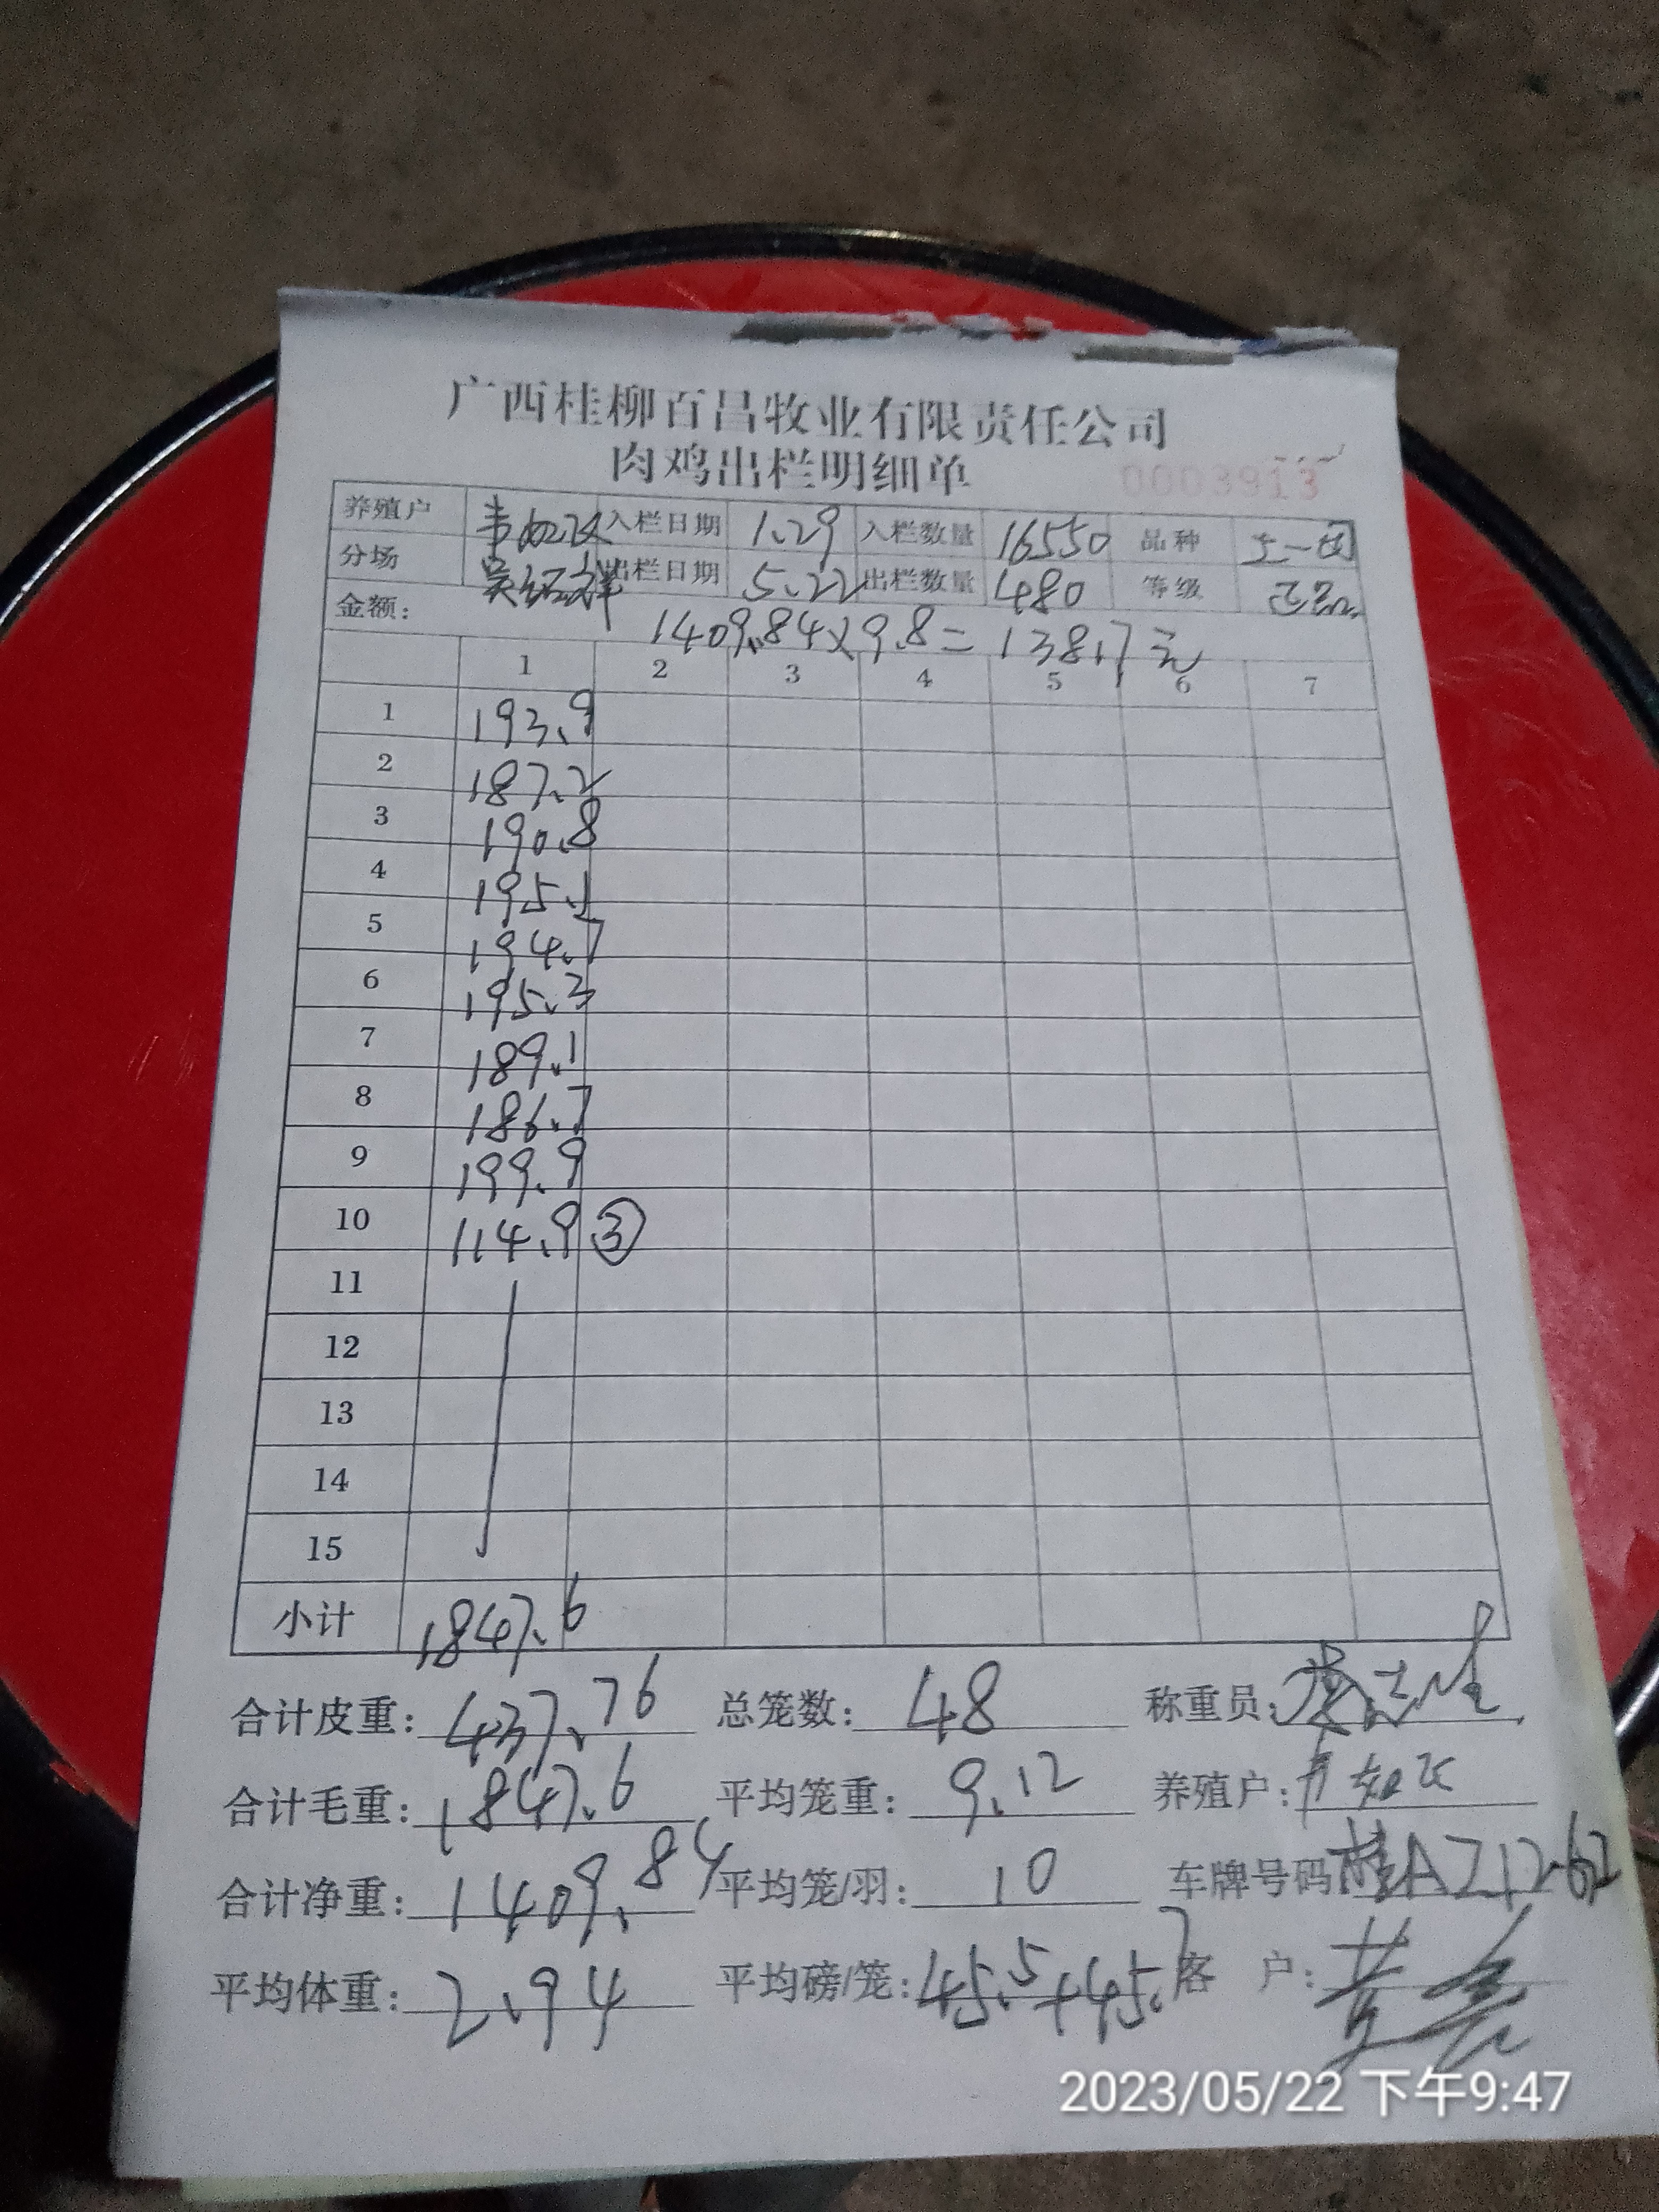 广西桂柳百昌牧业有限责任公司
肉鸡出栏明细单 0003913
养殖户 入栏日期 1.29 入栏数量 16550 品种 土一
分场 出栏日期 5.22 出栏数量 480 等级 正品
金额： 1409.84×9.8= 13817元
1 2 3 4 5 6 7
1 193.9
2 187.2
3 190.8
4 195.1
5 194.7
6 195.3
7 189.1
8 186.7
9 199.9
10 114.9 ③
11
12
13
14
15
小计 1847.6
合计皮重： 437.76 总笼数： 48 称重员：
合计毛重： 1847.6 平均笼重： 9.12 养殖户：
合计净重： 1409.84 平均笼/羽： 10 车牌号码 桂AZ1262
平均体重： 2.94 平均磅/笼： 45.5+45.7 客 户： 黄
2023/05/22 下午9:47